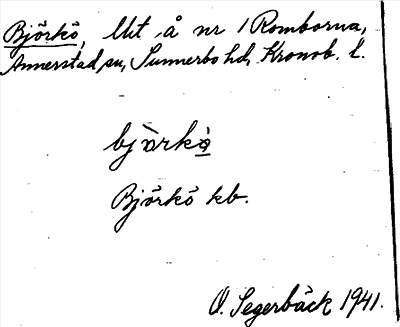 Björkö, lht å nr 1 Romborna,
Annerstad sn, Sunnerbo hd, Kronob. l.
bjòrkò̲
Björkö kb.
O. Segerbäck 1941.